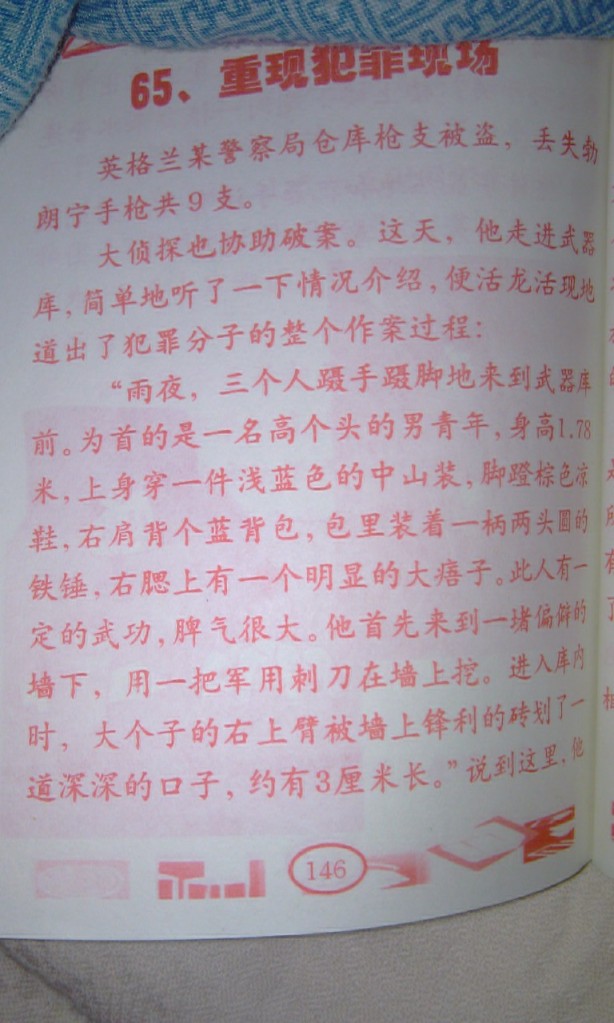 65、重现犯罪现场
英格兰某警察局仓库枪支被盗，丢失勃
朗宁手枪共9支。
大侦探也协助破案。这天，他走进武器
库，简单地听了一下情况介绍，便活龙活现地
道出了犯罪分子的整个作案过程：
“雨夜，三个人蹑手蹑脚地来到武器库
前。为首的是一名高个头的男青年，身高1.78
米，上身穿一件浅蓝色的中山装，脚蹬棕色凉
鞋，右肩背个蓝背包，包里装着一柄两头圆的
铁锤，右腮上有一个明显的大痦子。此人有一
定的武功，脾气很大。他首先来到一堵偏僻的
墙下，用一把军用刺刀在墙上挖。进入库内
时，大个子的右上臂被墙上锋利的砖划了一
道深深的口子，约有3厘米长。”说到这里，他
146